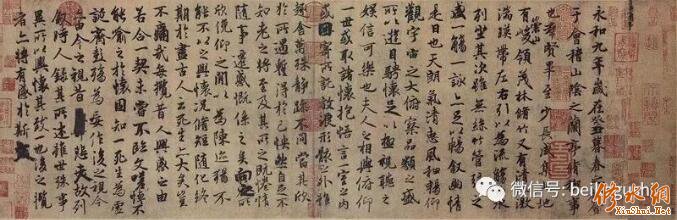 永和九年歲在癸丑暮春之初會
于會稽山陰之蘭亭脩稧事
也群賢畢至少長咸集此地
有崇山峻領茂林脩竹又有清流激
湍暎帶左右引以為流觴曲水
列坐其次雖無絲竹管弦之
盛一觴一詠亦足以暢敘幽情
是日也天朗氣清惠風和暢仰
觀宇宙之大俯察品類之盛
所以遊目騁懷足以極視聽之
娛信可樂也夫人之相與俯仰
一世或取諸懷抱悟言一室之內
或因寄所託放浪形骸之外雖
趣舍萬殊靜躁不同當其欣
於所遇蹔得於己怏然自足不
知老之將至及其所之既惓情
隨事遷感慨係之矣向之所
欣俛仰之閒以為陳迹猶不
能不以之興懷況脩短隨化終
期於盡古人云死生亦大矣豈
不痛哉每攬昔人興感之由
若合一契未嘗不臨文嗟悼不
能喻之於懷固知一死生為虛
誕齊彭殤為妄作後之視今
亦由今之視昔悲夫故列
敘時人錄其所述雖世殊事
異所以興懷其致一也後之攬
者亦將有感於斯文
微信号:
修水网
XiuShui.Net